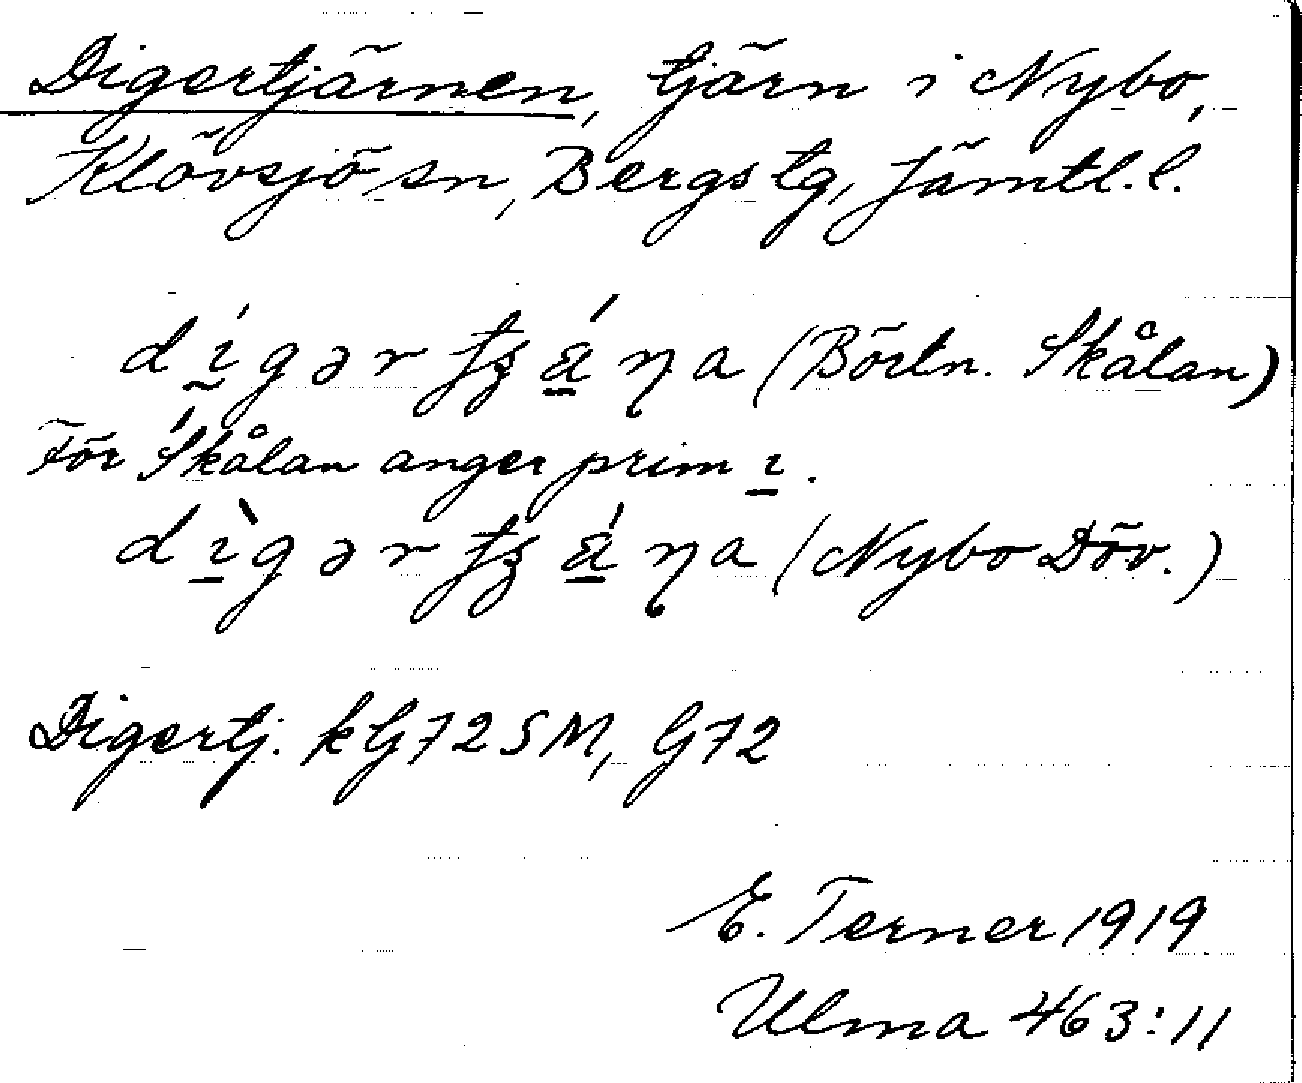 Digertjärnen, tjärn i Nybo,
Klövsjö sn, Bergs tg, Jämtl. l.
(Börtn. Skålan)
För Skålan anger prim ı.
(Nybo Döv.)
Digertj. kG72SM, G72
E. Terner 1919
Ulma 463:11